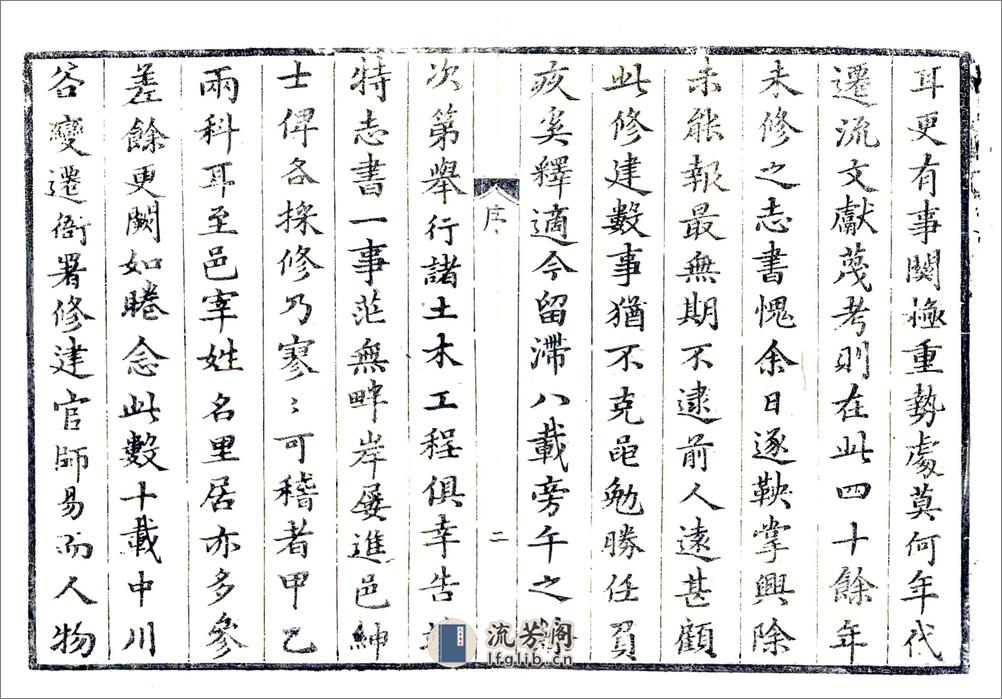 耳更有事関極重勢處莫何年代
遷流文獻蔑考則在此四十餘年
未修之志書愧余日逐鞅掌興除
未能報最無期不逮前人遠甚顧
此修建數事猶不克黽勉勝任負
疚奚釋適今留滯八載旁午之
次第舉行諸土木工程俱幸告
特志書一事茫無畔岸屡進邑紳
士俾各採修乃寥〻可稽者甲乙
兩科耳至邑宰姓名里居亦多參
差餘更闕如睠念此數十載中川
谷變遷衙署修建官師易而人物
序
二
流芳阁
lfglib.cn